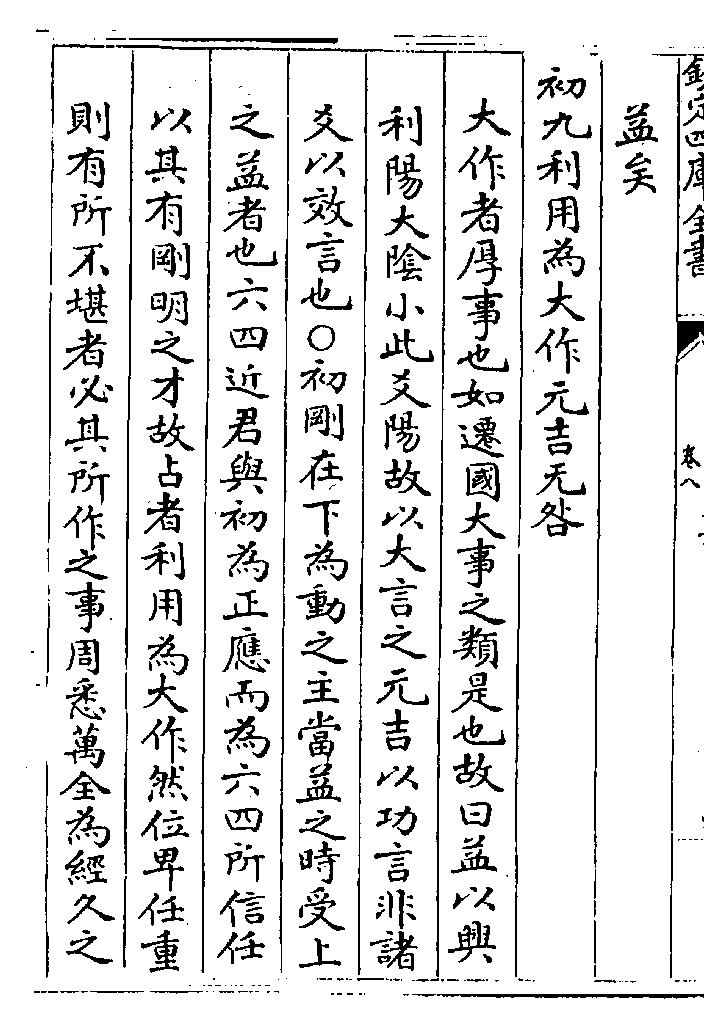 欽定四庫全書
卷八
益矣
初九利用為大作元吉无咎
大作者厚事也如遷國大事之類是也故曰益以興
利陽大陰小此爻陽故以大言之元吉以功言非諸
爻以效言也○初剛在下為動之主當益之時受上
之益者也六四近君與初為正應而為六四所信任
以其有剛明之才故占者利用為大作然位卑任重
則有所不堪者必其所作之事周悉萬全為經久之